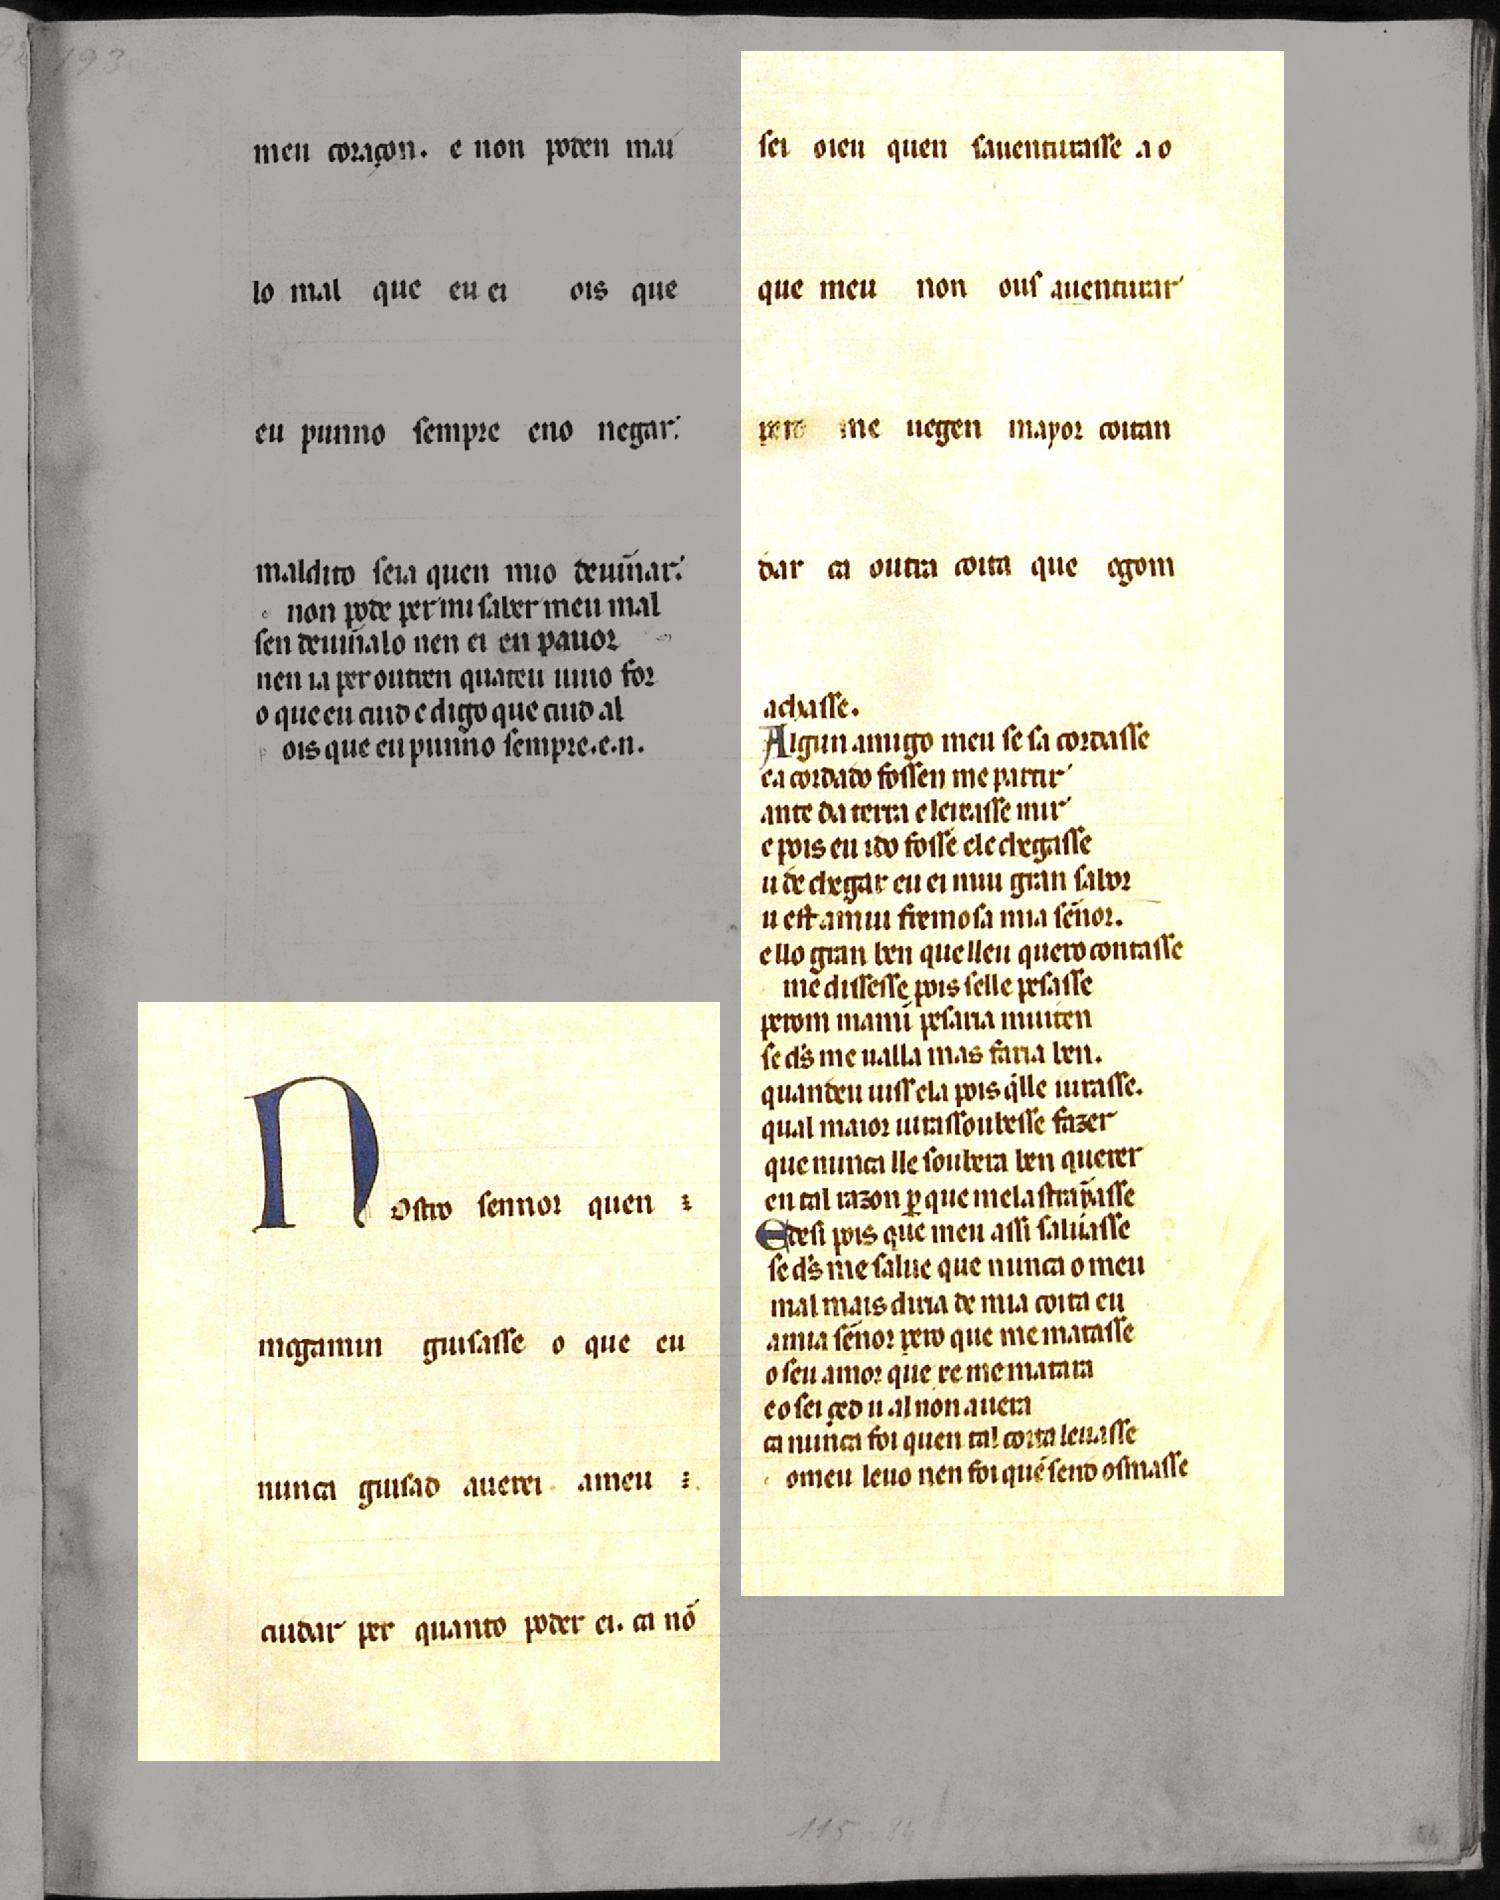 193
meu coraçon. e non poden mai
lo mal que eu ei ois que
eu punno sempre eno negar.
maldito seia quen mio deuinnar.
non pode per mi saber meu mal
sen deuiñalo nen ei en pauor
nen ia per outren quateu uiuo for
o que eu cuid e digo que cuid al
ois que eu puñno sempre.e.n.
Nostro sennor quen
megamin guisasse o que eu
nunca guisad auerei ameu
cuidar per quanto poder ei. ca nõ
sei oieu quen sauenturasse ao
que meu non ous auenturar
pero me uegen mayor coitan
dar ca outra coita que egom
achasse.
Algun amigo meu se sa cordasse
ea cordado fossen me partir
ante da terra e leixasse mir
e pois eu ido fosse ele chegasse
u de chegar eu ei mui gran sabor
u est amui fremosa mia señor.
ello gran ben quelleu quero contasse
me dissesse pois selle pesasse
perom mamĩ pesaria muiten
se ds me ualla mas faria ben.
quandeu uissela pois qlle iurasse.
qual maior iurassoubesse fazer
que nunca lle soubera ben querer
en tal razon ꝑ que mela strayasse
Edesi pois que meu assi saluasse
se ds me salue que nunca o meu
mal mais diria de mia coita eu
amia señor pero que me matasse
o seu amor que xe me matara
eo sei ced u al non auera
ca nunca foi quen tal coita leuasse
omeu leuo nen foi quẽ send osmasse
115 84